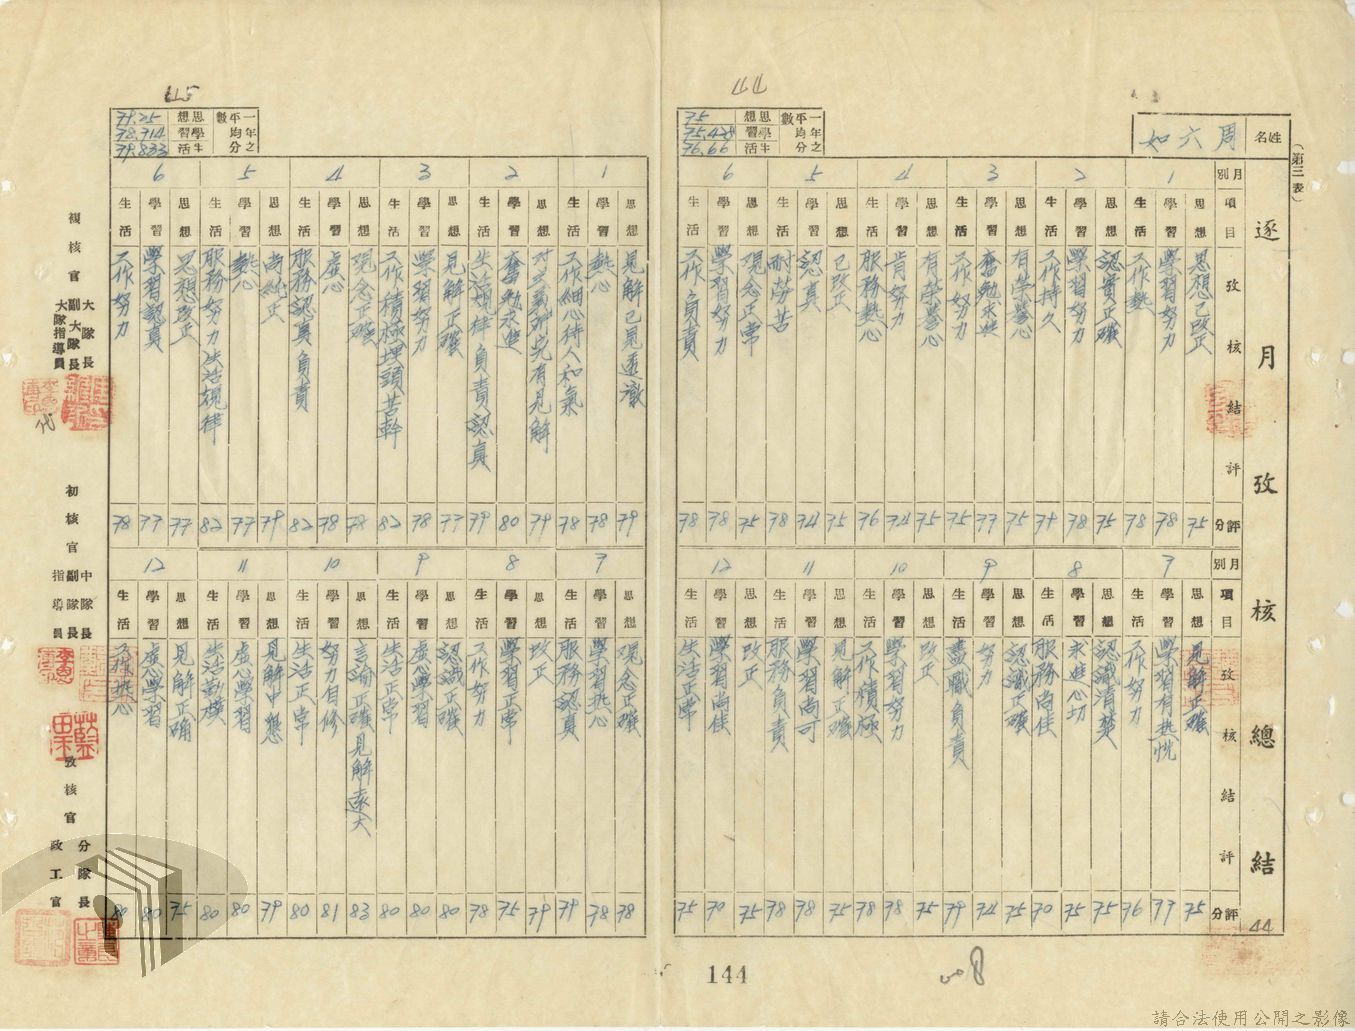 (第三表)
逐月攷核總結
44
姓名
周六如
44
一年之平均分數
思想 75
學習 75.428
生活 76.66
月別
1
2
3
4
5
6
項目
攷核結評
評分
思想 思想已改正 75
學習 學習努力 78
生活 工作熱心 78
思想 認實正確 75
學習 學習努力 78
生活 工作持久 79
思想 有學養心 75
學習 奮勉求進 77
生活 工作努力 75
思想 有榮譽心 75
學習 肯努力 74
生活 服務熱心 76
思想 已改正 75
學習 認真 74
生活 耐勞苦 78
思想 观念正常 75
學習 學習努力 78
生活 工作負責 78
月別
7
8
9
10
11
12
項目
攷核結評
評分
思想 見解正確 75
學習 學習有熱忱 77
生活 工作努力 76
思想 認識清楚 75
學習 求進心切 75
生活 服務尚佳 70
思想 認識正確 75
學習 努力 74
生活 盡職負責 79
思想 改正 75
學習 學習努力 78
生活 工作積極 78
思想 見解正確 75
學習 學習尚可 78
生活 服務負責 78
思想 改正 75
學習 學習尚佳 70
生活 生活正常 75
144
45
一年之平均分數
思想 79.25
學習 78.714
生活 79.833
1
2
3
4
5
6
思想 見解已見透澈 79
學習 熱心 78
生活 工作細心待人和氣 78
思想 对主義研究有見解 79
學習 奮勉求進 80
生活 生活規律負責認真 79
思想 見解正確 77
學習 學習努力 78
生活 工作積極埋頭苦幹 82
思想 观念正確 78
學習 虛心 78
生活 服務認真負責 82
思想 尚純正 79
學習 熱心 77
生活 服務努力生活規律 82
思想 思想改正 77
學習 學習認真 77
生活 工作努力 78
7
8
9
10
11
12
思想 观念正確 78
學習 學習热心 78
生活 服務認真 79
思想 改正 79
學習 學習正常 75
生活 工作努力 78
思想 認識正確 80
學習 虛心學習 80
生活 生活正常 80
思想 言論正確見解遠大 83
學習 努力自修 81
生活 生活正常 80
思想 見解中懇 79
學習 虛心學習 80
生活 生活勤樸 80
思想 見解正确 75
學習 虛心學習 80
生活 工作热心 80
複核官
大隊長
副大隊長
大隊指導員
代
初核官
中隊長
副隊長
指導員
攷核官
分隊長
政工官
請合法使用公開之影像